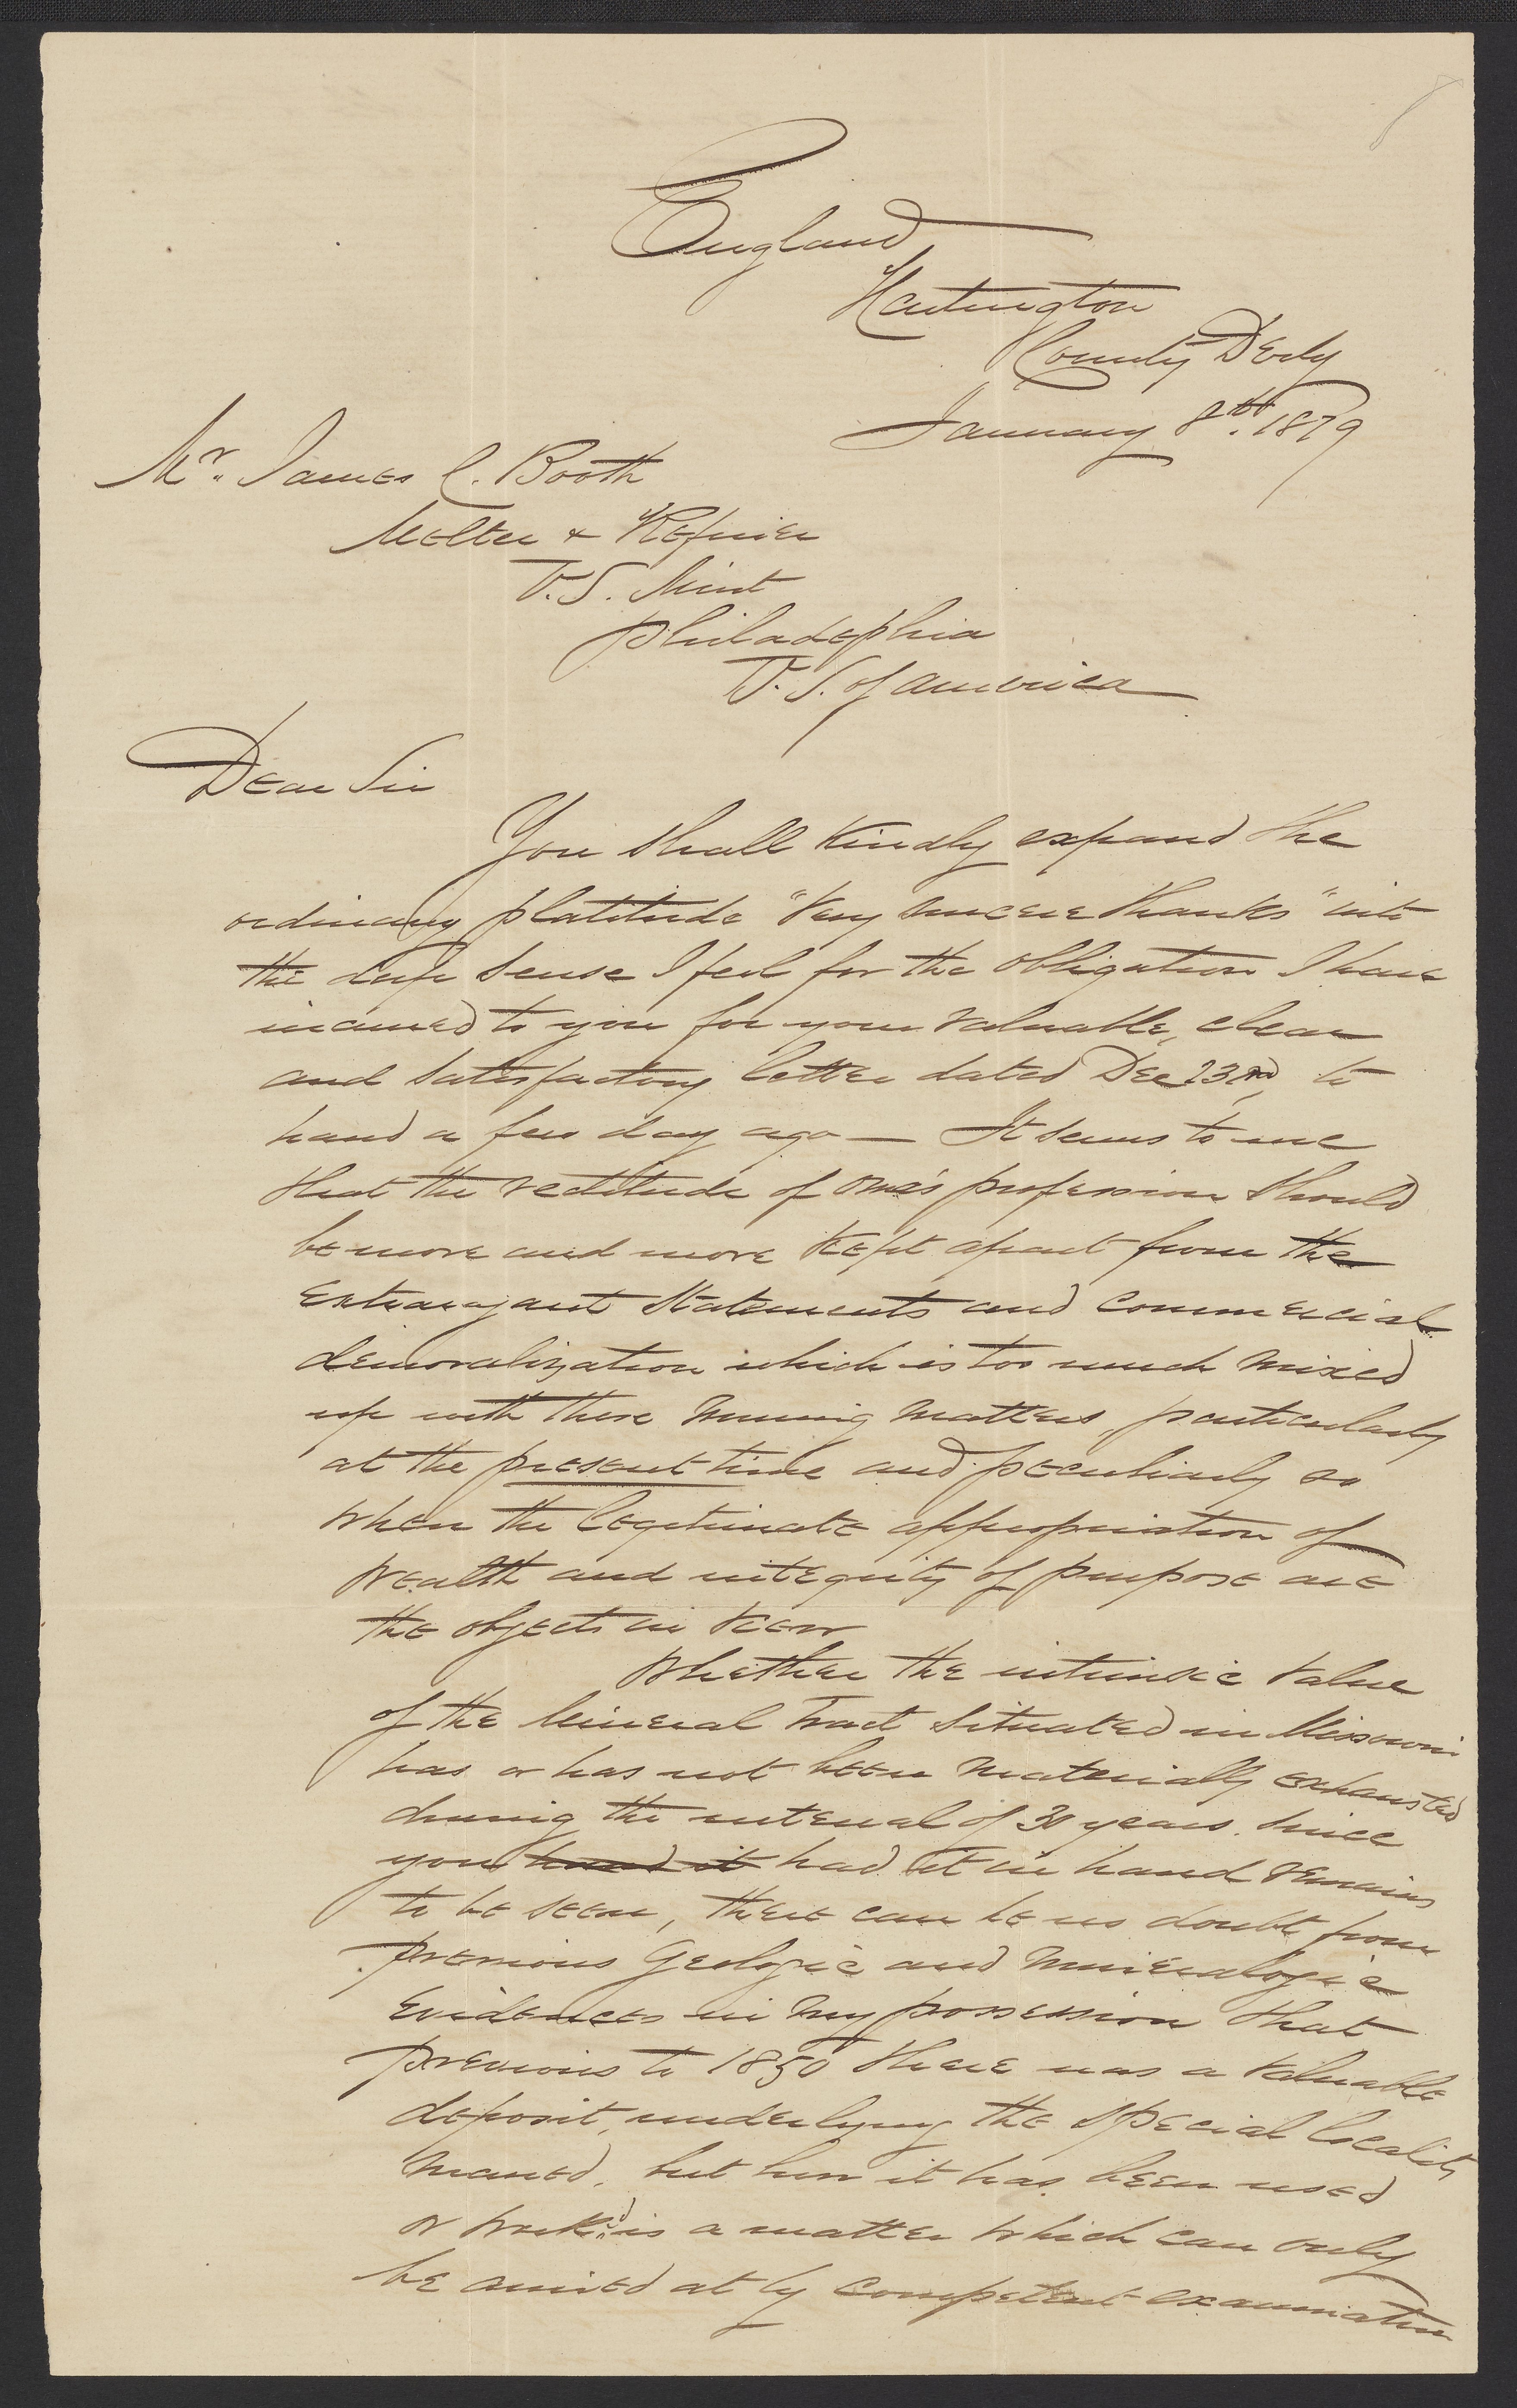 England
Hartington
County Derby
January 8th. 1879
Mr. James C. Booth
Melter & Refiner
U.S. Mint
Philadephia
U.S. of America
Dear Sir
You shall kindly expand the
ordinary platitude "Very sincere thanks" into
the deep sense I feel for the obligation I have
incurred to you for your valuable, clear
and satisfactory letter dated Dec 23rd, to
hand a few day ago — It seems to me
that the rectitude of one's profession should
be more and more kept apart from the
extravagant statements and commercial
demoralization which is too much mixed
up with these mining matters, particularly
at the present time and peculiarly so
when the legitimate appropriation of
wealth and integrity of purpose are
the objects in view
Whether the intrinsic value
of the Mineral tract situated in Missouri
has or has not been materially exhausted
during the interval of 30 years since
you had it in hand remains
to be seen, there can be no doubt from
previous Geologic and Mineralogic
evidences in my possession that
previous to 1850 there was a valuable
deposit, underlying the special locality
named, but how it has been used
or work'd is a matter which can only
be arrived at by competent examination